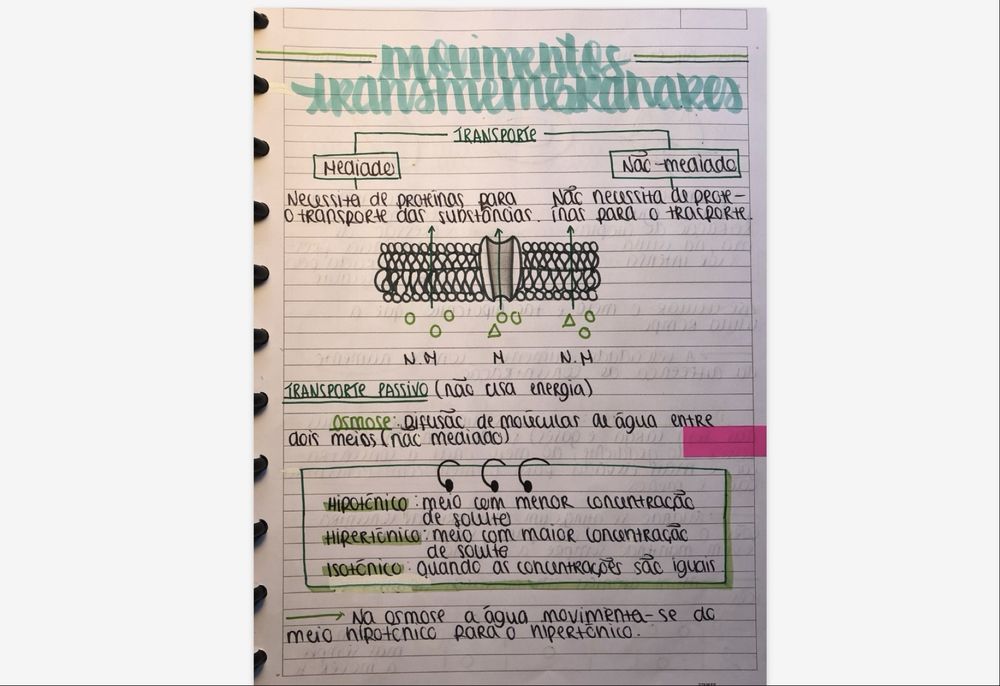 movimentos
transmembranares
TRANSPORTE
Mediado
Não-mediado
Necessita de proteínas para
o transporte das substâncias.
Não necessita de prote-
ínas para o trasporte.
N.M
M
N.M
TRANSPORTE PASSIVO (não usa energia)
Osmose: Difusão de moléculas de água entre
dois meios (não mediado)
Hipotónico: meio com menor concentração
de soluto
Hipertónico: meio com maior concentração
de soluto
Isotónico: quando as concentrações são iguais
Na osmose a água movimenta-se do
meio hipotónico para o hipertónico.